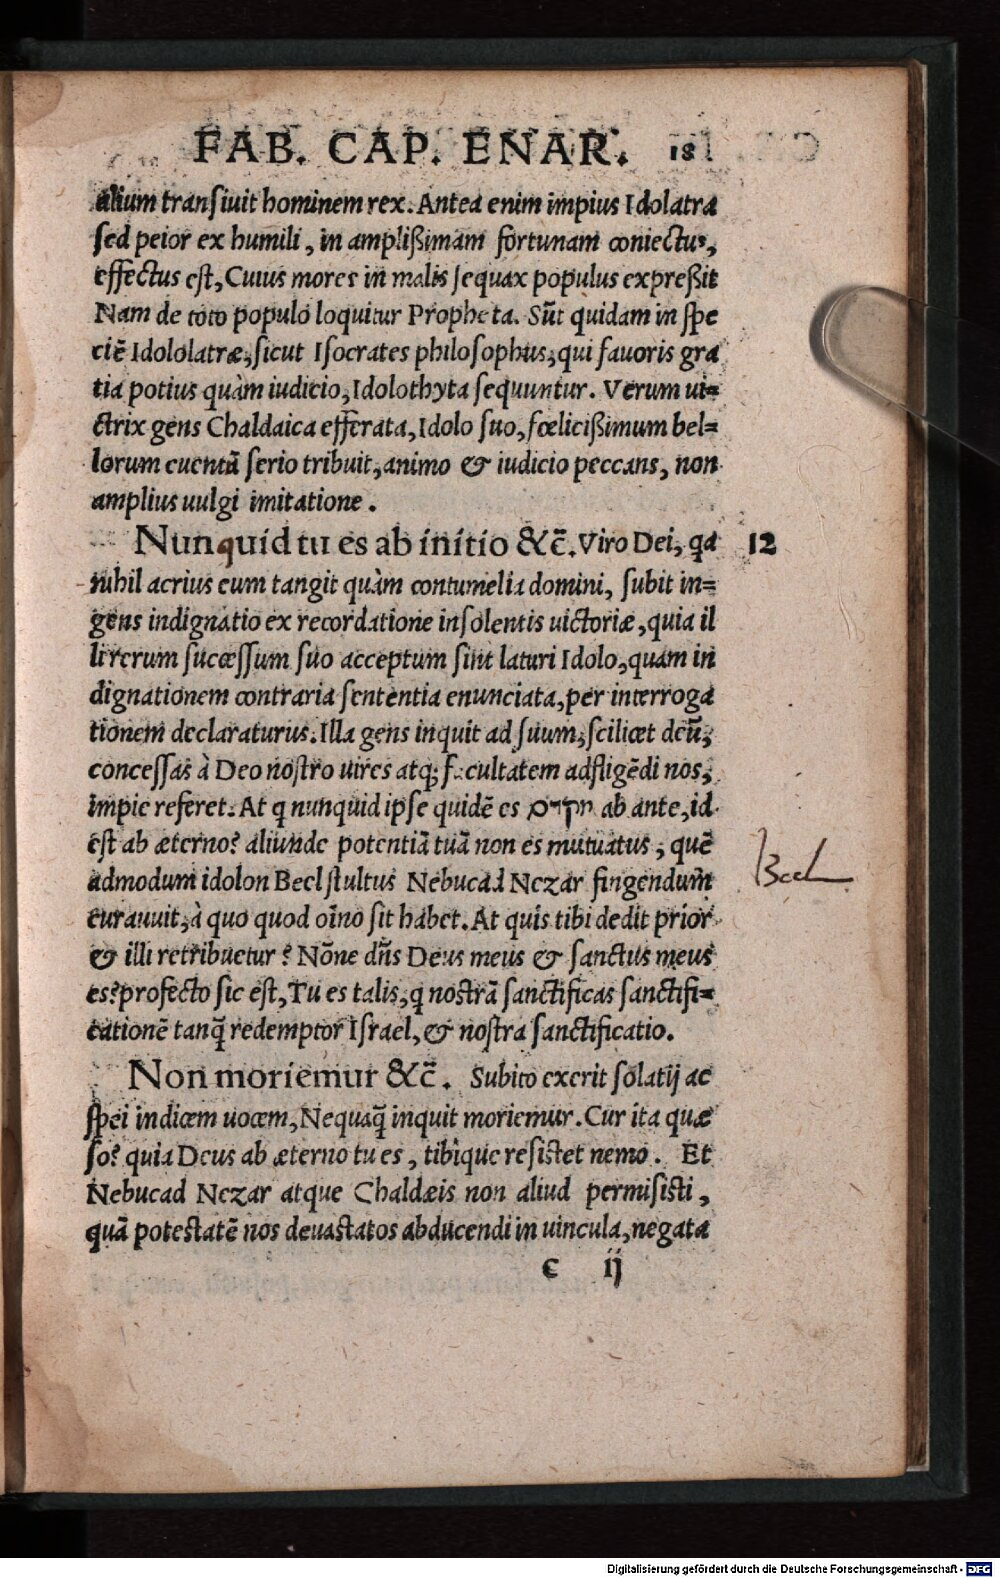 FAB. CAP. ENAR. 18
alium transiuit hominem rex. Antea enim impius Idolatra
sed peior ex humili, in amplißimam fortunam coniectus,
effectus est, Cuius mores in malis sequax populus expreßit
Nam de toto populo loquitur Propheta. Sūt quidam in spe
ciē Idololatræ, sicut Isocrates philosophus, qui fauoris gra
tia potius quàm iudicio, Idolothyta sequuntur. Verum ui=
ctrix gens Chaldaica efferata, Idolo suo, fœlicißimum bel=
lorum euentū serio tribuit, animo & iudicio peccans, non
amplius uulgi imitatione.
Nunquid tu es ab initio &c̄. Viro Dei, qa 12
nihil acrius eum tangit quàm contumelia domini, subit in=
gens indignatio ex recordatione insolentis uictoriæ, quia il
li rerum successum suo acceptum sint laturi Idolo, quam in
dignationem contraria sententia enunciata, per interroga
tionem declaraturus. Illa gens inquit ad suum, scilicet deū,
concessas à Deo nostro uires atq; facultatem adfligēdi nos,
impie referet. At q nunquid ipse quidē es מקדם ab ante, id
est ab æterno? aliunde potentiā tuā non es mutuatus, quē
admodum idolon Beel stultus Nebucad Nezar fingendum
curauuit, à quo quod oīno sit habet. At quis tibi dedit prior
& illi retribuetur? Nōne dn̄s Deus meus & sanctus meus
es? profecto sic est, Tu es talis, q nostrā sanctificas sanctifi=
cationē tanq̄ redemptor Israel, & nostra sanctificatio.
Beel
Non moriemur &c̄. Subito exerit solatij ac
spei indicem uocem, Nequaq̄ inquit moriemur. Cur ita quæ
so? quia Deus ab æterno tu es, tibique resistet nemo. Et
Nebucad Nezar atque Chaldæis non aliud permisisti,
quā potestatē nos deuastatos abducendi in uincula, negata
c ij
Digitalisierung gefördert durch die Deutsche Forschungsgemeinschaft - DFG